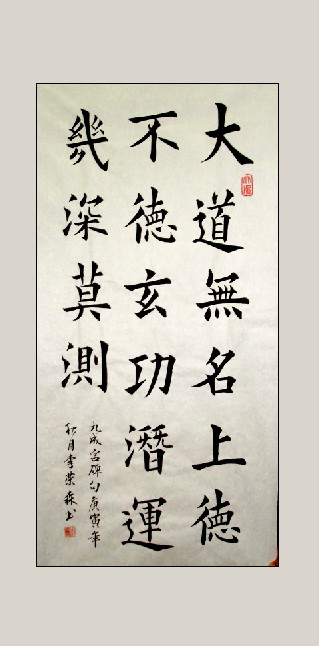 大道無名上德
不德玄功潛運
幾深莫測
九成宮碑句庚寅年
秋月李榮森书